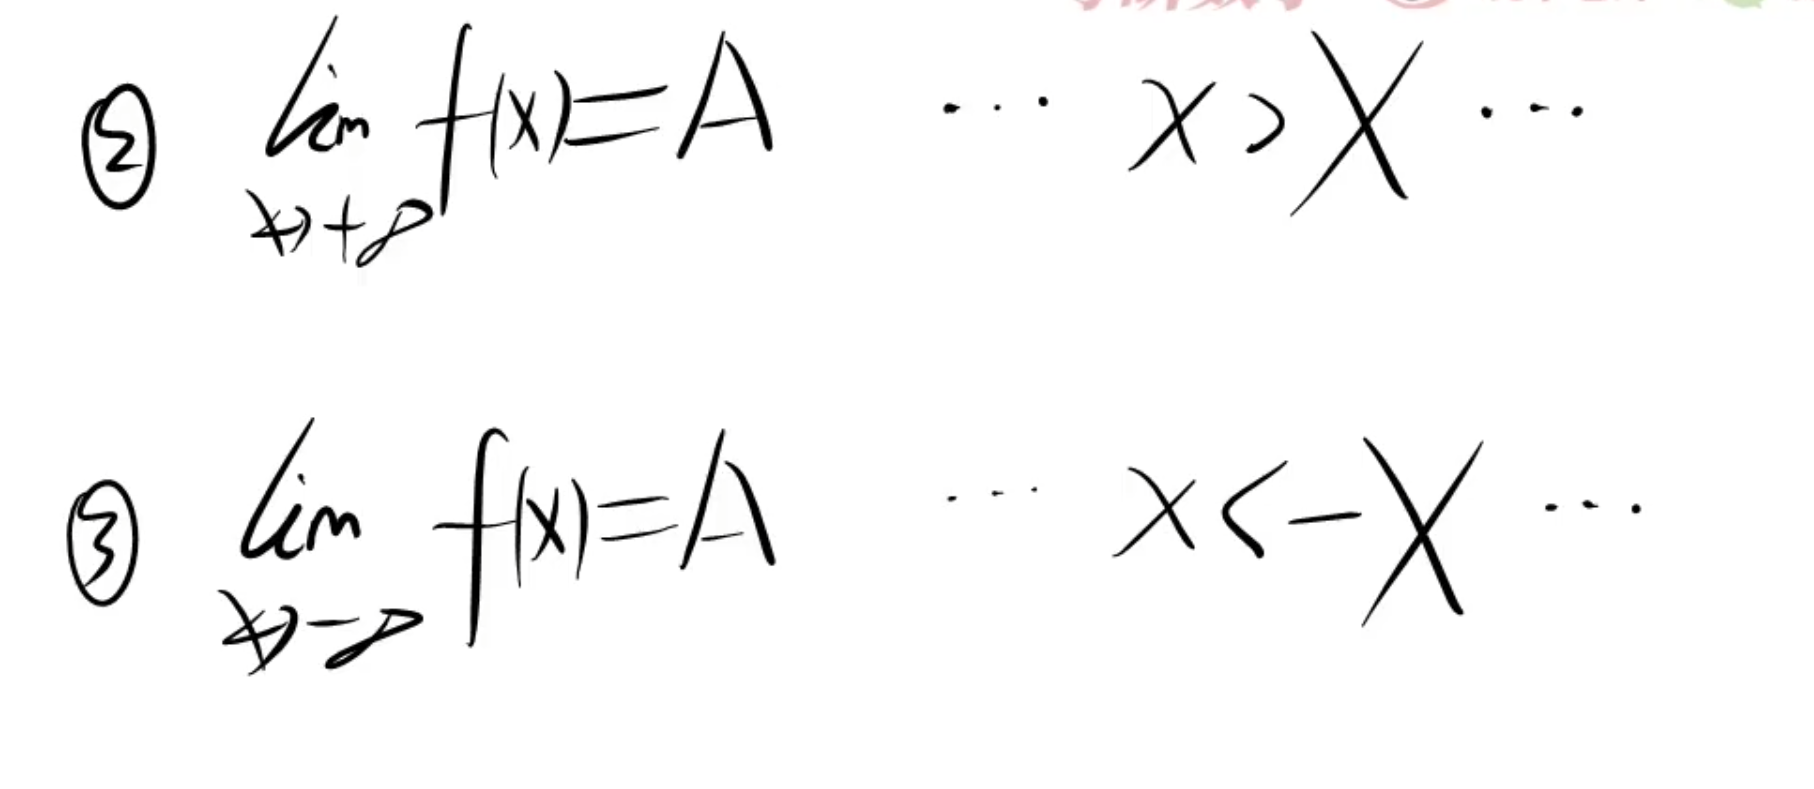 ② lim f(x)=A ... x>X ...
x→+∞
③ lim f(x)=A ... x<-X ...
x→-∞